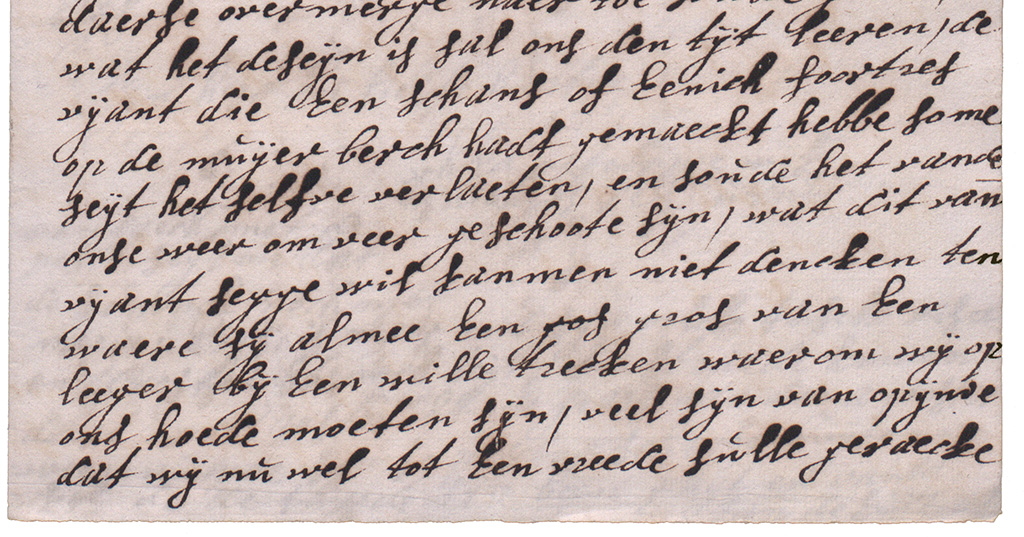 daerse overmerge naer toe
wat het deseijn is sal ons den tijt leeren, de
vijant die een schans of eenich soortres
op de muijer berch hadt gemaeckt hebbe some
seijt het selfve verlaeten, en soude het vande
onse weer om veer geschoote sijn, wat dit van
vijant segge wil kanmen niet dencken ten
waere sij almee een gos gros van een
leeger bij een wille trecken waerom wij op
ons hoede moeten sijn, veel sijn van opijnie
dat wij nu wel tot een vreede sulle geraecke